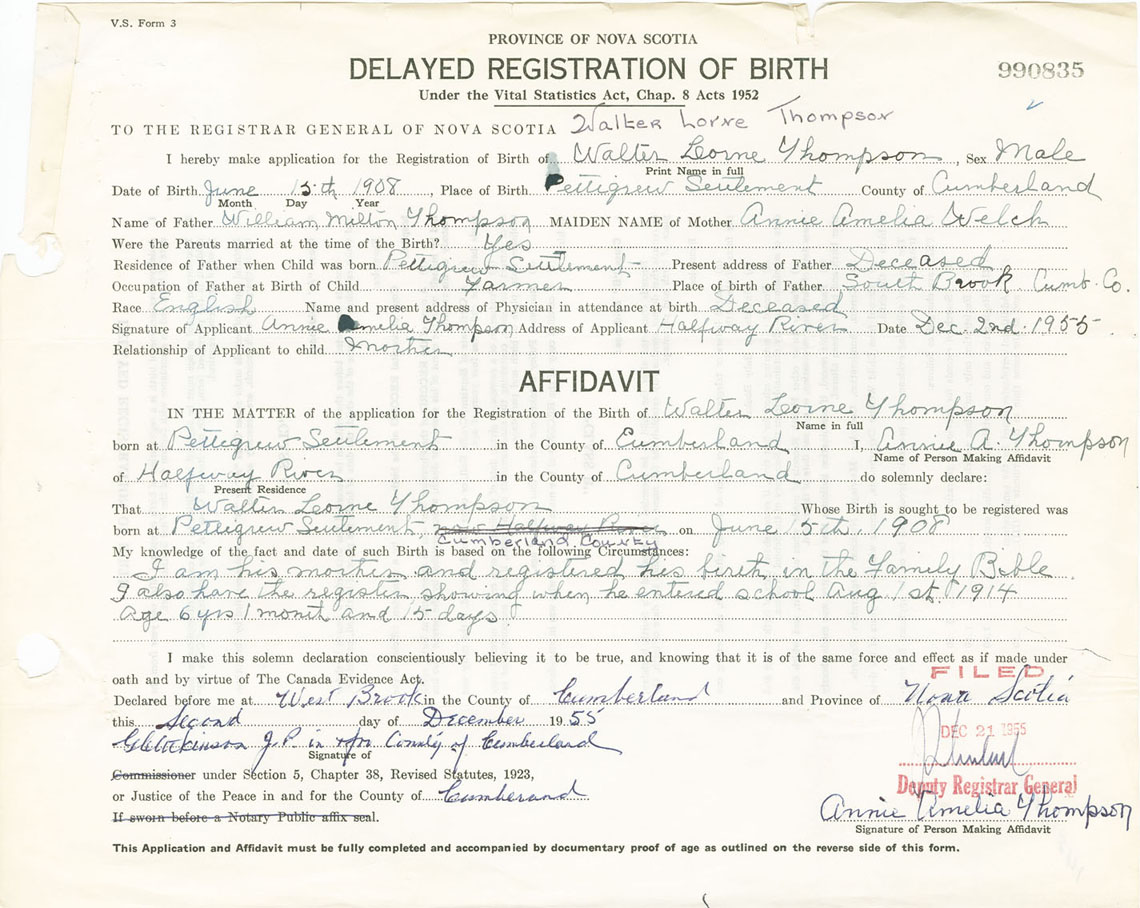 V.S. Form 3
PROVINCE OF NOVA SCOTIA
DELAYED REGISTRATION OF BIRTH
990835
Under the Vital Statistics Act, Chap. 8 Acts 1952
TO THE REGISTRAR GENERAL OF NOVA SCOTIA Walter Lorne Thompson
I hereby make application for the Registration of Birth of Walter Leorne Thompson, Sex Male
Print Name in full
Date of Birth June 15th 1908, Place of Birth Pettigrew Seutlement County of Cumberland
Month Day Year
Name of Father William Milton Thompson MAIDEN NAME of Mother Annie Amelia Welch
Were the Parents married at the time of the Birth? Yes
Residence of Father when Child was born Pettigrew Seutlement Present address of Father Deceased
Occupation of Father at Birth of Child Farmer Place of birth of Father South Brook Cumb. Co.
Race English Name and present address of Physician in attendance at birth Deceased
Signature of Applicant Annie Amelia Thompson Address of Applicant Halfway River Date Dec. 2nd. 1955
Relationship of Applicant to child Mother
AFFIDAVIT
IN THE MATTER of the application for the Registration of the Birth of Walter Leorne Thompson
Name in full
born at Pettigrew Seutlement in the County of Cumberland I, Annie A. Thompson
Name of Person Making Affidavit
of Halfway River in the County of Cumberland do solemnly declare:
Present Residence
That Walter Leorne Thompson Whose Birth is sought to be registered was
born at Pettigrew Seutlement, now Halfway River on June 15th, 1908
Cumberland County
My knowledge of the fact and date of such Birth is based on the following Circumstances:
I am his mother and registered his birth in the Family Bible.
I also have the register showing when he entered school Aug. 1st. 1914
Age 6 yrs 1 month and 15 days.
I make this solemn declaration conscientiously believing it to be true, and knowing that it is of the same force and effect as if made under
oath and by virtue of The Canada Evidence Act.
FILED
Declared before me at West Brook in the County of Cumberland and Province of Nova Scotia
this Second day of December 1955
DEC 21 1955
J.P. in & for County of Cumberland
Signature of
Commissioner under Section 5, Chapter 38, Revised Statutes, 1923,
Deputy Registrar General
or Justice of the Peace in and for the County of Cumberand
Annie Amelia Thompson
If sworn before a Notary Public affix seal.
Signature of Person Making Affidavit
This Application and Affidavit must be fully completed and accompanied by documentary proof of age as outlined on the reverse side of this form.